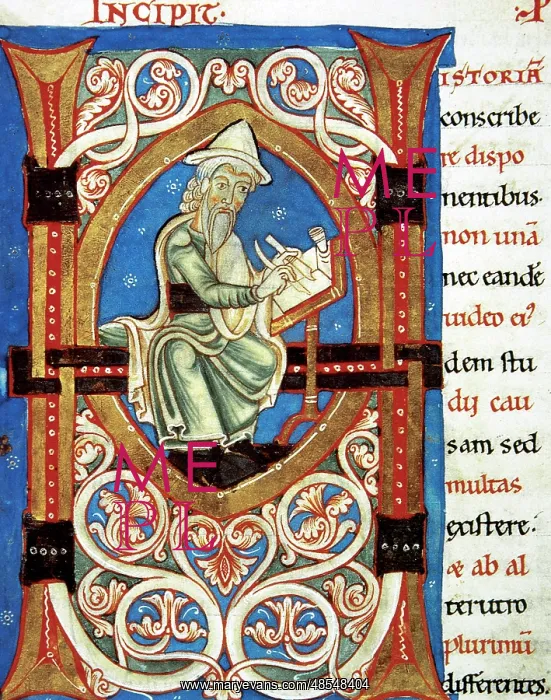 INCIPIT· ·P
H
ISTORIĀ
conscribe
re dispo
nentibus·
non unā
nec eandē
uideo
dem stu
dij cau
sam sed
multas
existere·
æ ab al
terutro
plurimū
differentes
ME
PL
ME
PL
www.maryevans.com/48548404